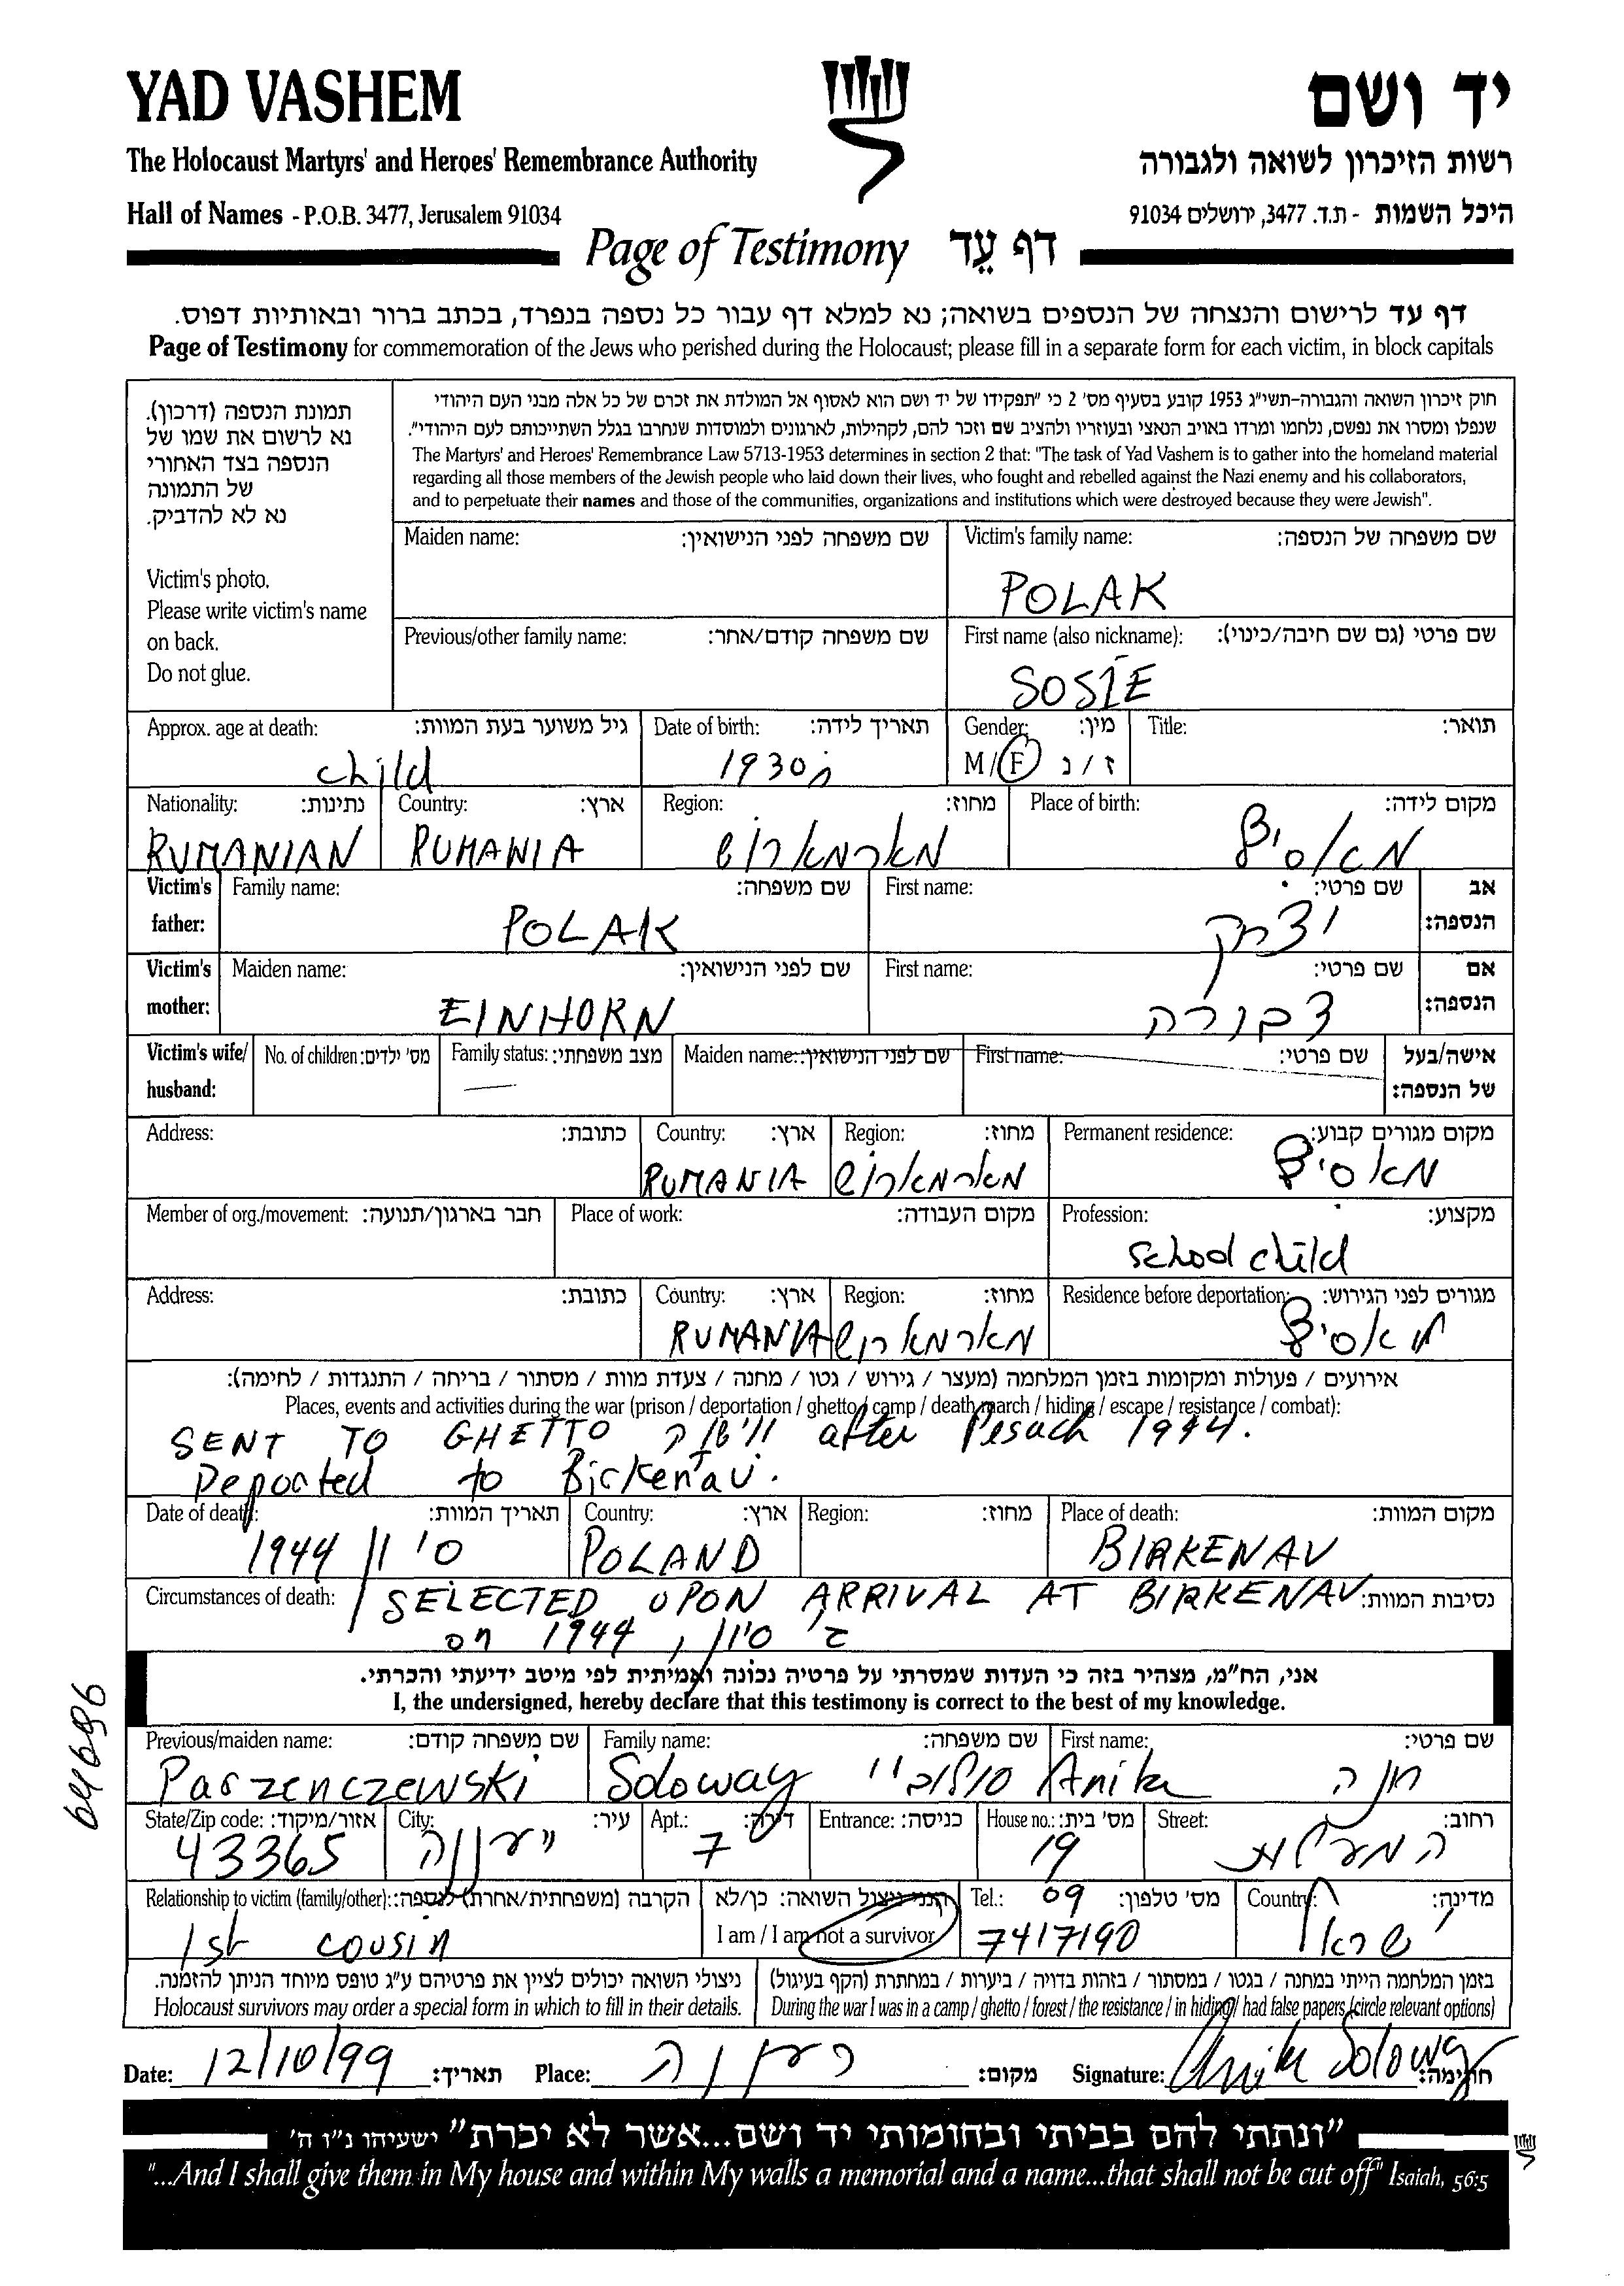 YAD VASHEM
יד ושם
The Holocaust Martyrs' and Heroes' Remembrance Authority
רשות הזיכרון לשואה ולגבורה
Hall of Names - P.O.B. 3477, Jerusalem 91034
היכל השמות - ת.ד. 3477, ירושלים 91034
Page of Testimony דף עֵד
דף עד לרישום והנצחה של הנספים בשואה; נא למלא דף עבור כל נספה בנפרד, בכתב ברור ובאותיות דפוס.
Page of Testimony for commemoration of the Jews who perished during the Holocaust; please fill in a separate form for each victim, in block capitals
תמונת הנספה (דרכון).
נא לרשום את שמו של
הנספה בצד האחורי
של התמונה
נא לא להדביק.
Victim's photo.
Please write victim's name
on back.
Do not glue.
חוק זיכרון השואה והגבורה-תשי"ג 1953 קובע בסעיף מס' 2 כי "תפקידו של יד ושם הוא לאסוף אל המולדת את זכרם של כל אלה מבני העם היהודי
שנפלו ומסרו את נפשם, נלחמו ומרדו באויב הנאצי ובעוזריו ולהציב שם וזכר להם, לקהילות, לארגונים ולמוסדות שנחרבו בגלל השתייכותם לעם היהודי".
The Martyrs' and Heroes' Remembrance Law 5713-1953 determines in section 2 that: "The task of Yad Vashem is to gather into the homeland material
regarding all those members of the Jewish people who laid down their lives, who fought and rebelled against the Nazi enemy and his collaborators,
and to perpetuate their names and those of the communities, organizations and institutions which were destroyed because they were Jewish".
Maiden name: שם משפחה לפני הנישואין: Victim's family name: שם משפחה של הנספה:
POLAK
Previous/other family name: שם משפחה קודם/אחר: First name (also nickname): שם פרטי (גם שם חיבה/כינוי):
SOSIE
Approx. age at death: גיל משוער בעת המוות: Date of birth: תאריך לידה: Gender: מין: Title: תואר:
child 1930 M / F ז / נ
Nationality: נתינות: Country: ארץ: Region: מחוז: Place of birth: מקום לידה:
RUMANIAN RUMANIA מארמארוש מאסיף
Victim's father: Family name: שם משפחה: First name: שם פרטי: אב הנספה:
POLAK יצחק
Victim's mother: Maiden name: שם לפני הנישואין: First name: שם פרטי: אם הנספה:
EINHORN דבורה
Victim's wife/ husband: No. of children: מס' ילדים: Family status: מצב משפחתי: Maiden name: שם לפני הנישואין: First name: שם פרטי: אישה/בעל של הנספה:
Address: כתובת: Country: ארץ: Region: מחוז: Permanent residence: מקום מגורים קבוע:
RUMANIA מארמארוש מאסיף
Member of org./movement: חבר בארגון/תנועה: Place of work: מקום העבודה: Profession: מקצוע:
School child
Address: כתובת: Country: ארץ: Region: מחוז: Residence before deportation: מגורים לפני הגירוש:
RUMANIA מארמארוש מאסיף
אירועים / פעולות ומקומות בזמן המלחמה (מעצר / גירוש / גטו / מחנה / צעדת מוות / מסתור / בריחה / התנגדות / לחימה):
Places, events and activities during the war (prison / deportation / ghetto / camp / death march / hiding / escape / resistance / combat):
SENT TO GHETTO after Pesach 1944.
Deported to Birkenau.
Date of death: תאריך המוות: Country: ארץ: Region: מחוז: Place of death: מקום המוות:
1944 סיון POLAND BIRKENAU
Circumstances of death: SELECTED UPON ARRIVAL AT BIRKENAU נסיבות המוות:
on 1944, סיון ב'
אני, הח"מ, מצהיר בזה כי העדות שמסרתי על פרטיה נכונה ואמיתית לפי מיטב ידיעתי והכרתי.
I, the undersigned, hereby declare that this testimony is correct to the best of my knowledge.
Previous/maiden name: שם משפחה קודם: Family name: שם משפחה: First name: שם פרטי:
Parzenczewski Soloway סולוביי Anika חנה
State/Zip code: אזור/מיקוד: City: עיר: Apt.: דירה: Entrance: כניסה: House no.: מס' בית: Street: רחוב:
43365 רעננה 7 19
Relationship to victim (family/other): הקרבה (משפחתית/אחרת) לנספה: הנני ניצול השואה: כן/לא Tel.: 09 מס' טלפון: Country: מדינה:
1st cousin I am / I am not a survivor 7417190 ישראל
ניצולי השואה יכולים לציין את פרטיהם ע"ג טופס מיוחד הניתן להזמנה.
Holocaust survivors may order a special form in which to fill in their details.
בזמן המלחמה הייתי במחנה / בגטו / במסתור / בזהות בדויה / ביערות / במחתרת (הקף בעיגול)
During the war I was in a camp / ghetto / forest / the resistance / in hiding / had false papers (circle relevant options)
Date: 12/10/99 תאריך: Place: רעננה מקום: Signature: Anika Soloway חתימה:
"ונתתי להם בביתי ובחומותי יד ושם...אשר לא יכרת" ישעיהו נ"ו ה'
"...And I shall give them in My house and within My walls a memorial and a name...that shall not be cut off" Isaiah, 56:5
64696